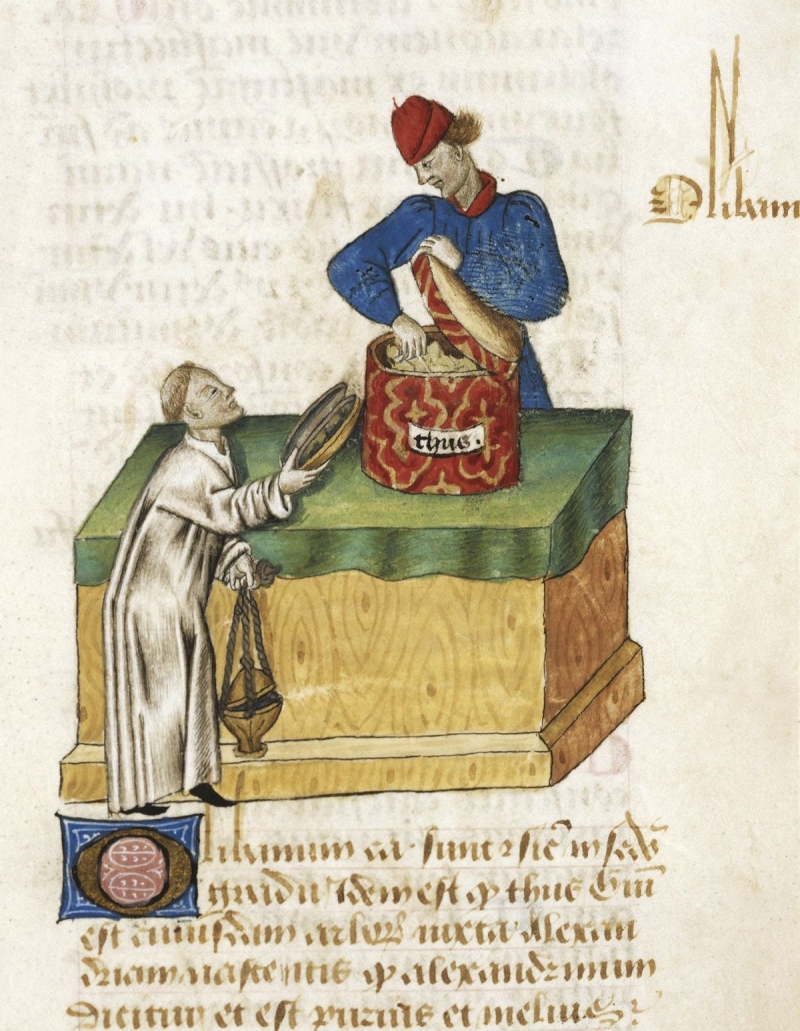 Olibanum
thus.
Olibanum ca. sunt et sic. in secdo
gradu Idem est qd thus Gūi
est cuiusdam arbor. iuxta Alexan
driam nascentis qd alexandrinum
dicitur et est purius et melius